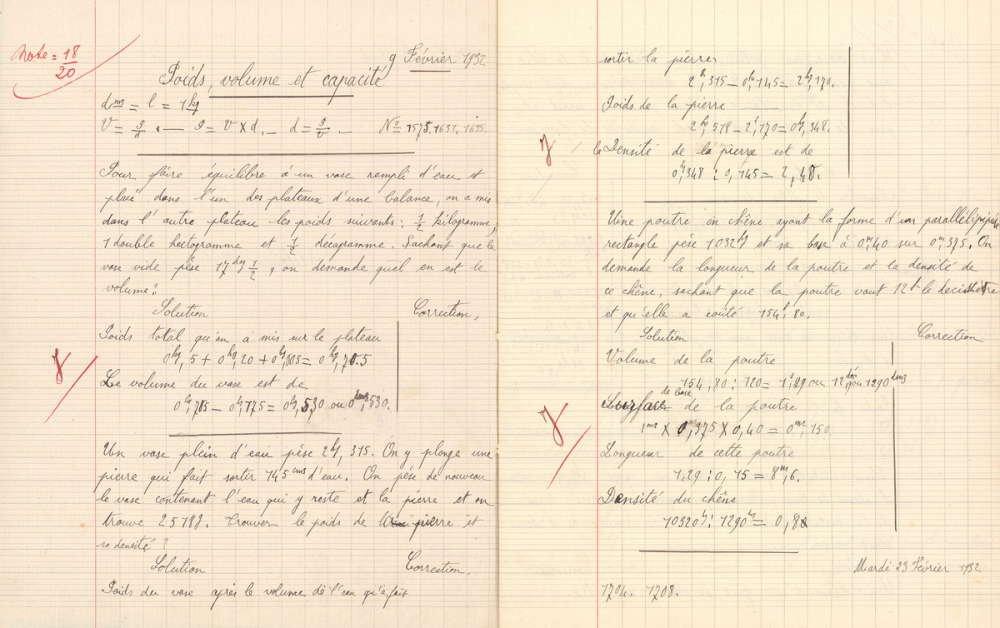 Note = 18/20
9 Février 1932
Poids, volume et capacité
dm³ = l = 1 kg
V = P/d . — P = V x d . — d = P/V — Nos 1575, 1651, 1655.
Pour faire équilibre à un vase rempli d'eau et
placé dans l'un des plateaux d'une balance, on a mis
dans l'autre plateau les poids suivants : 1/2 kilogramme,
1 double hectogramme et 1/2 décagramme. Sachant que le
vase vide pèse 17 dag 1/2, on demande quel en est le
volume ?
Solution Correction.
Poids total qu'on a mis sur le plateau
0kg,5 + 0kg,20 + 0kg,005 = 0kg,705
Le volume du vase est de
0kg,705 – 0kg,175 = 0kg,530 ou 0dm3,530.
Un vase plein d'eau pèse 2kg,315. On y plonge une
pierre qui fait sortir 145 cm3 d'eau. On pèse de nouveau
le vase contenant l'eau qui y reste et la pierre et on
trouve 2518g. Trouver le poids de la pierre et
sa densité ?
Solution Correction.
Poids du vase après le volume de l'eau qu'a fait
sortir la pierre
2k,315 – 0k,145 = 2k,170.
Poids de la pierre
2kg,518 – 2k,170 = 0kg,348.
la Densité de la pierre est de
0k,348 : 0,145 = 2,40.
Une poutre en chêne ayant la forme d'un parallélépipède
rectangle pèse 1032kg et sa base a 0m,40 sur 0m,375. On
demande la longueur de la poutre et la densité de
ce chêne, sachant que la poutre vaut 12f le décistère
et qu'elle a coûté 154f,80.
Solution Correction
Volume de la poutre
154,80 : 120 = 1s,29 ou 12dés,9 ou 1290dm3
Surface de base de la poutre
1m2 X 0,375 X 0,40 = 0m2,150
Longueur de cette poutre
1,29 : 0,15 = 8m,6.
Densité du chêne
1032kg : 1290kg = 0,8
Mardi 23 Février 1932
1704. 1708.